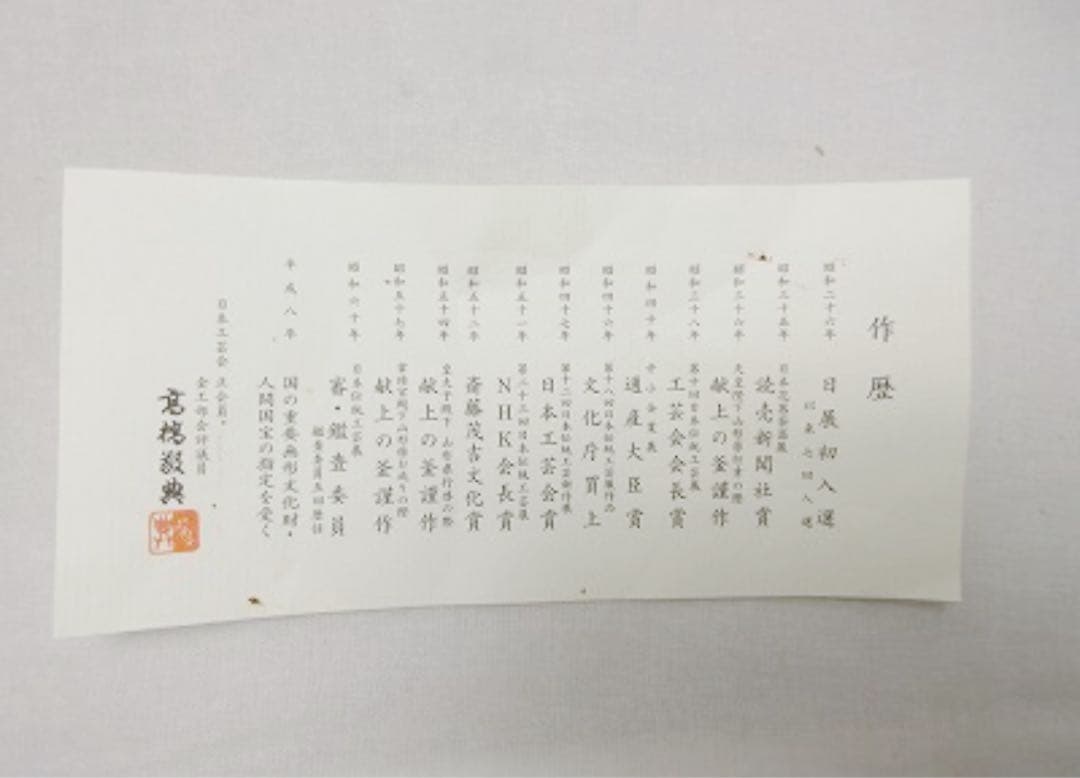 作歴
昭和二十六年 日展初入選
以来七回入選
昭和三十五年 日本花器茶器展
読売新聞社賞
昭和三十六年 天皇陛下山形県行幸の際
献上の釜謹作
昭和三十八年 第十回日本伝統工芸展
工芸会会長賞
昭和四十年
通産大臣賞
昭和四十六年 第十八回日本伝統工芸展作品
文化庁買上
昭和四十七年 第十二回日本伝統工芸新作展
日本工芸会賞
昭和五十一年 第二十三回日本伝統工芸展
NHK会長賞
昭和五十二年
斎藤茂吉文化賞
昭和五十四年 皇太子殿下山形県行啓の際
献上の釜謹作
昭和五十七年 常陸宮殿下山形県お成りの際
献上の釜謹作
昭和六十年 日本伝統工芸展
審・鑑査委員
鑑査委員五回歴任
平成八年 国の重要無形文化財・
人間国宝の指定を受く
日本工芸会 正会員、
金工部会評議員
高橋敬典